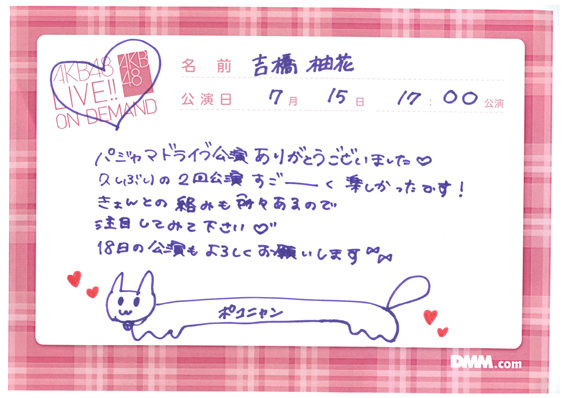 AKB48
LIVE!!
ON DEMAND
AKB
48
名 前 吉橋 柚花
公演日 7月 15日 17:00公演
パジャマドライブ公演 ありがとうございました♡
久しぶりの2回公演 すご——く 楽しかったです!
きょんとの絡みも所々あるので
注目してみて下さい♡
18日の公演もよろしくお願いします
ポコニャン
DMM.com